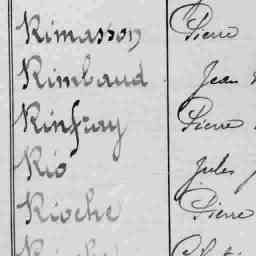 Rimasson Pierre
Rimbaud Jean
Rinfray Pierre
Rio Jules
Rioche Pierre